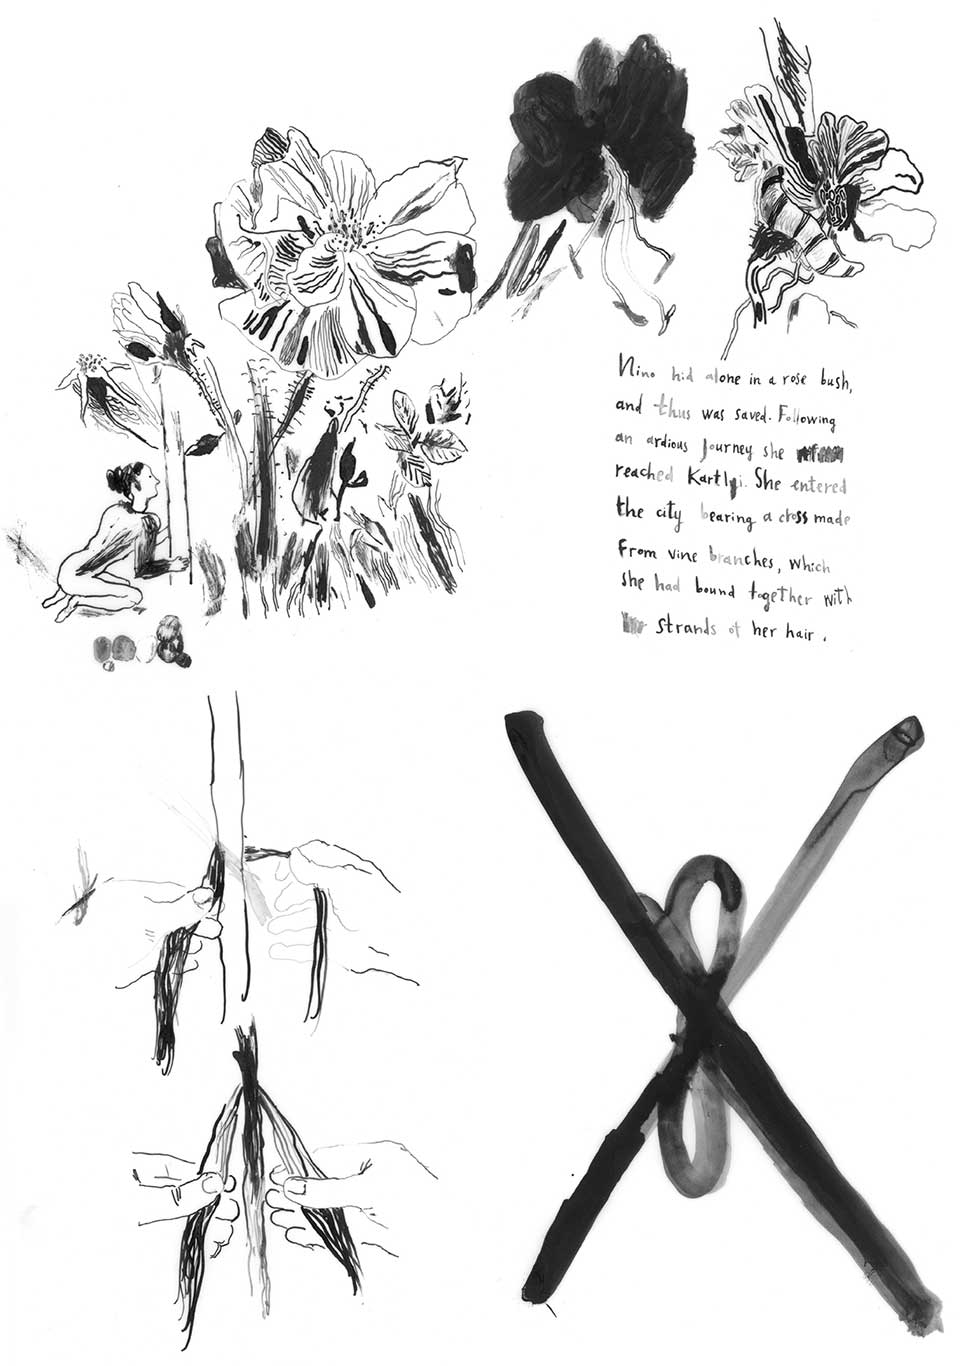 Nino hid alone in a rose bush,
and thus was saved. Following
an ardious journey she
reached Kartlyi. She entered
the city bearing a cross made
From vine branches, which
she had bound together with
strands of her hair.